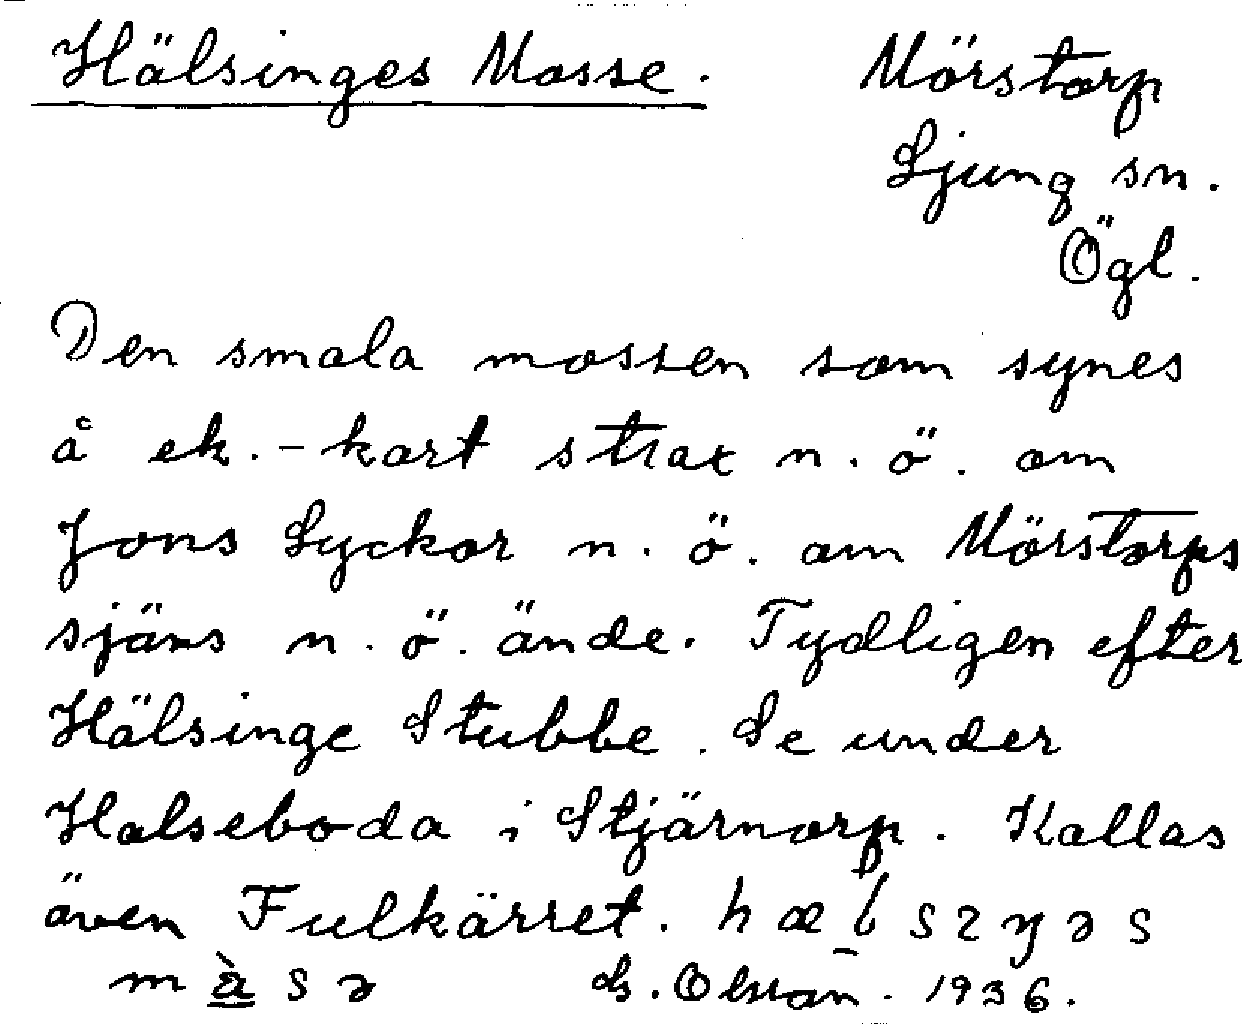 Hälsinges Mosse. Mörstorp
Ljung sn.
Ögl.
Den smala mossen som synes
å ek.-kart strax n.ö. om
Jons Lyckor n.ö. om Mörstorps
sjöns n.ö. ände. Tydligen efter
Hälsinge Stubbe. Se under
Halseboda i Stjärnorp. Kallas
även Fulkärret.
Olsson. 1936.